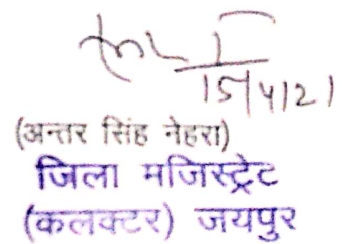 15/4/21
(अन्तर सिंह नेहरा)
जिला मजिस्ट्रेट
(कलक्टर) जयपुर